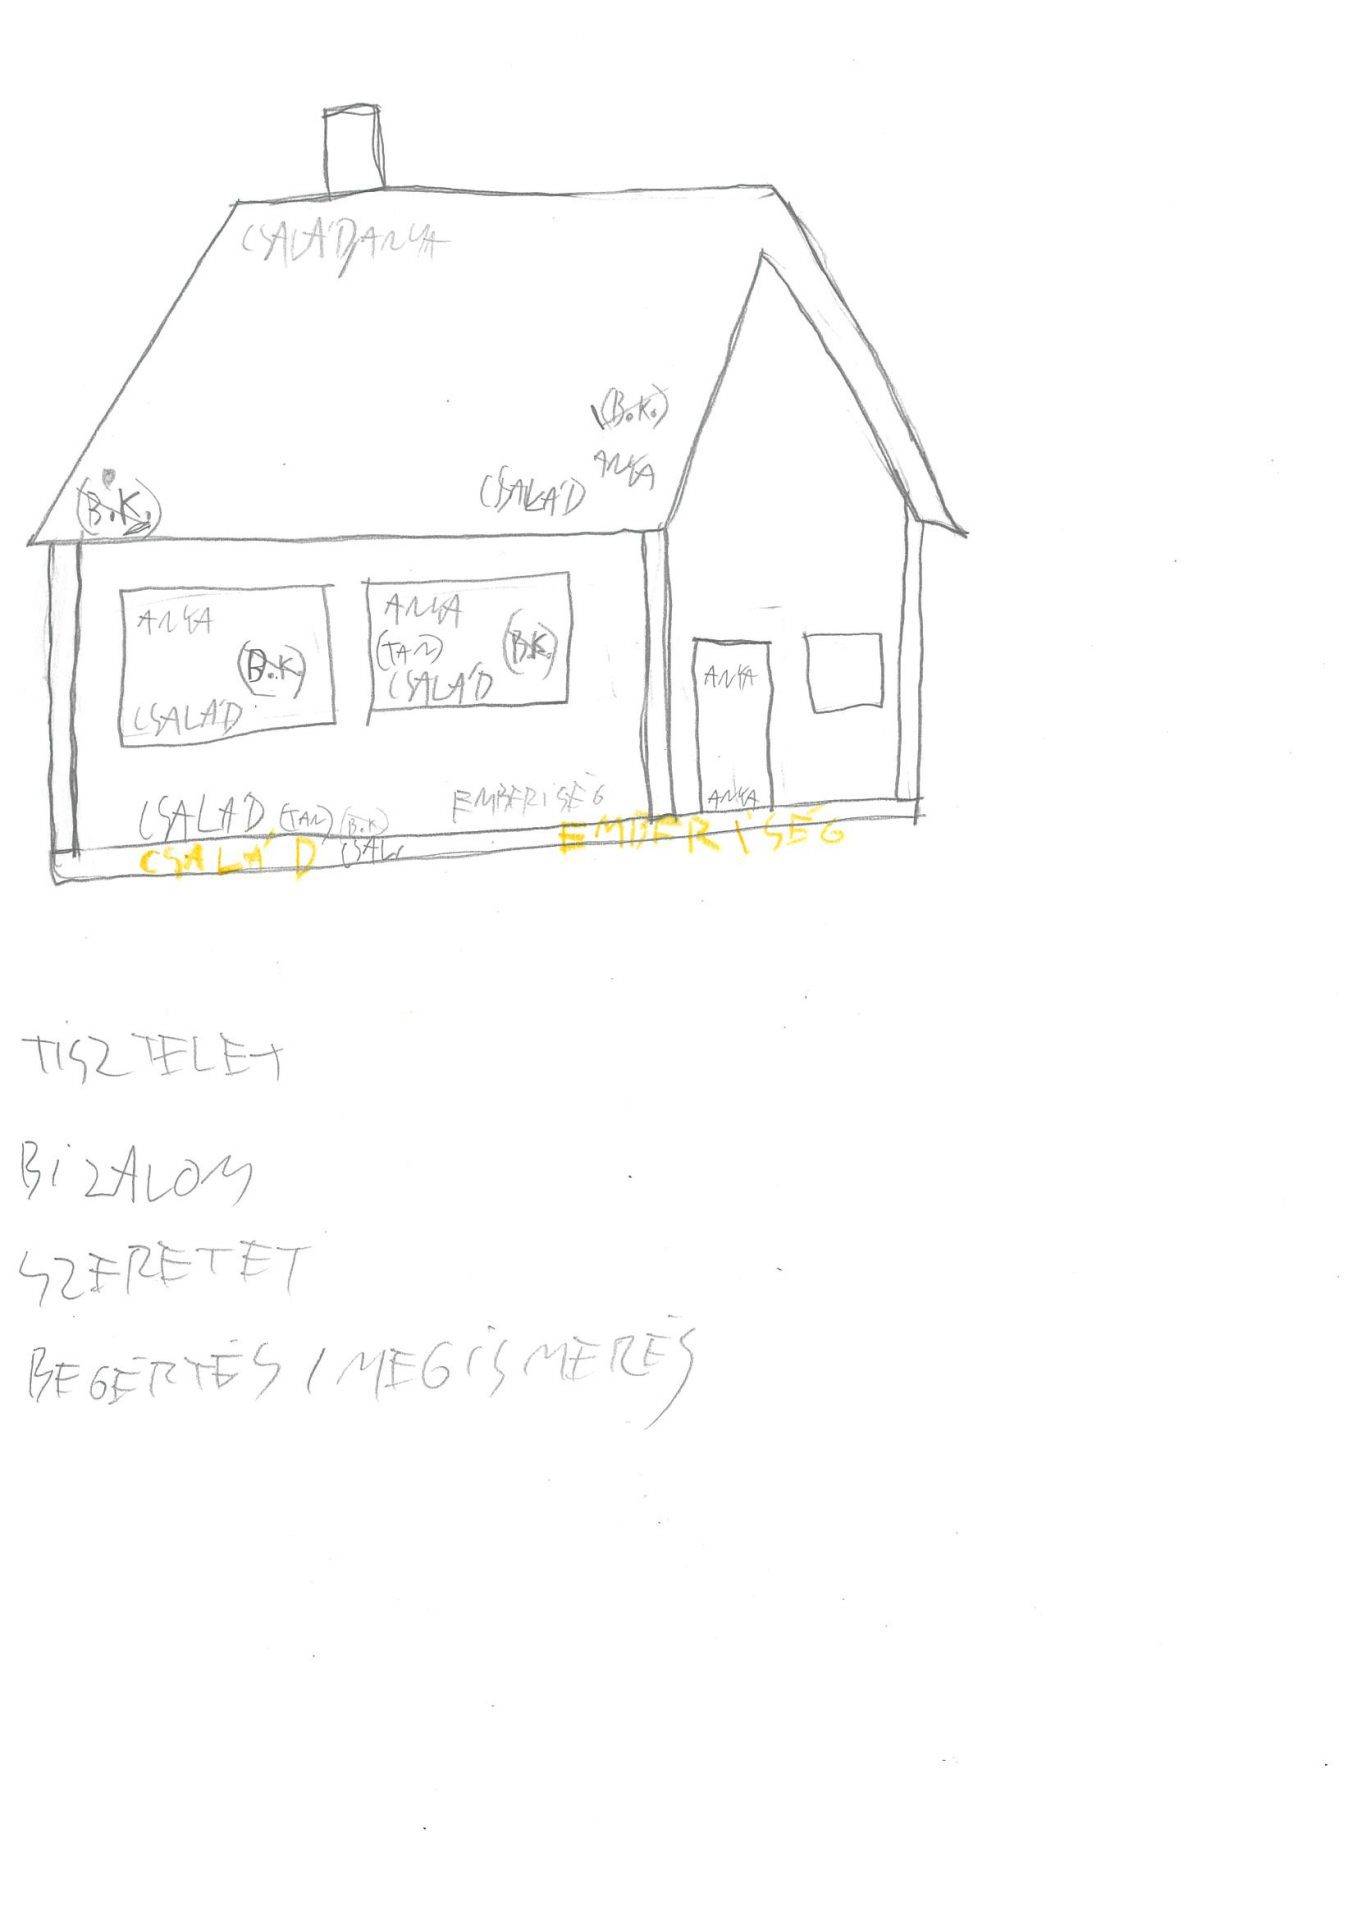 CSALÁD, ANYA
(B.K.)
ANYA
CSALÁD
(B.K.)
ANYA
(B.K.)
CSALÁD
ANYA
(TAN)
(B.K.)
CSALÁD
ANYA
ANYA
CSALÁD (TAN) (B.K)
EMBERISÉG
CSALÁD
CSAL
EMBERISÉG
TISZTELET
BIZALOM
SZERETET
BEGÉRTÉS / MEGISMERÉS